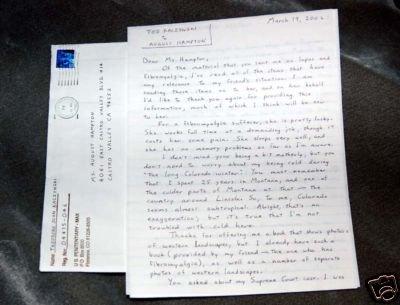 March 19, 2002
TED KACZYNSKI
to
AUGUST HAMPTON
Dear Ms. Hampton,
Of the material that you sent me on lupus and
fibromyalgia, I've read all of the items that have
any relevance to my friend's situation. I am
sending those items on to her, and on her behalf
I'd like to thank you again for providing this
information, much of which I think will be new
to her.
For a fibromyalgia sufferer, she is pretty lucky.
She works full time at a demanding job, though it
costs her some pain. She sleeps very well, and
she has no memory problems as far as I'm aware.
I don't mind your being a bit motherly, but you
don't need to worry about my being cold during
"the long Colorado winter." You must remember
that I spent 25 years in Montana, and one of
the colder parts of Montana at that — the
country around Lincoln. So, to me, Colorado
seems almost subtropical. Alright, that's an
exaggeration; but it's true that I'm not
troubled with cold here.
Thanks for offering me a book that shows photos
of western landscapes, but I already have such a
book (provided by my friend — the one who has
fibromyalgia), as well as a number of separate
photos of western landscapes.
You asked about my Supreme Court case. I was
MS. AUGUST HAMPTON
EAST CASTRO VALLEY BLVD
CASTRO VALLEY CA 94552
Name: THEODORE JOHN KACZYNSKI
Reg. No. 04475-046
U.S. PENITENTIARY - MAX
PO Box 8500
Florence, CO 81226-8500
ebay